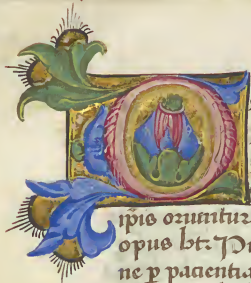 ipis oriuntur
opus bt: Pu
ne p pacientia